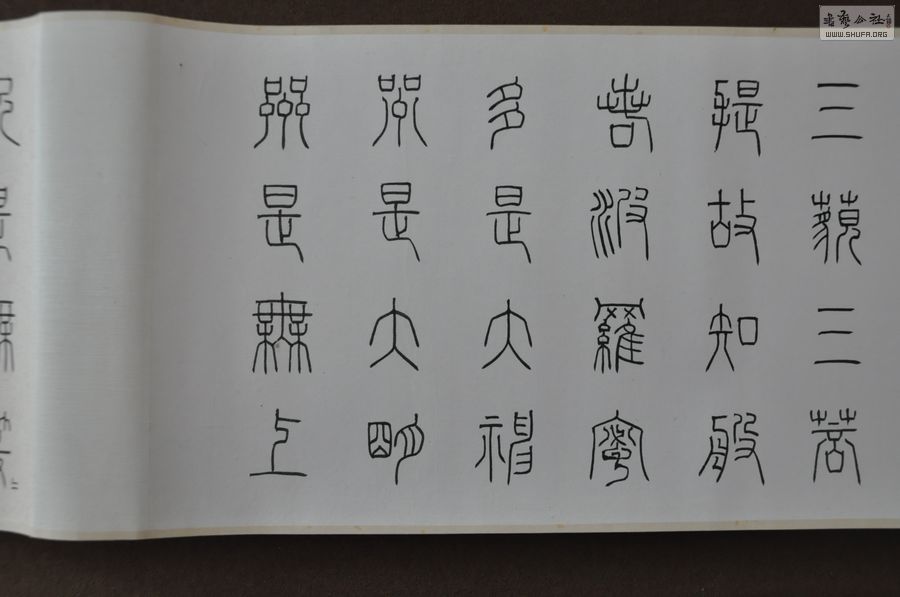 三藐三菩
提故知般
若波羅蜜
多是大神
咒是大明
咒是無上
書藝公社
WWW.SHUFA.ORG